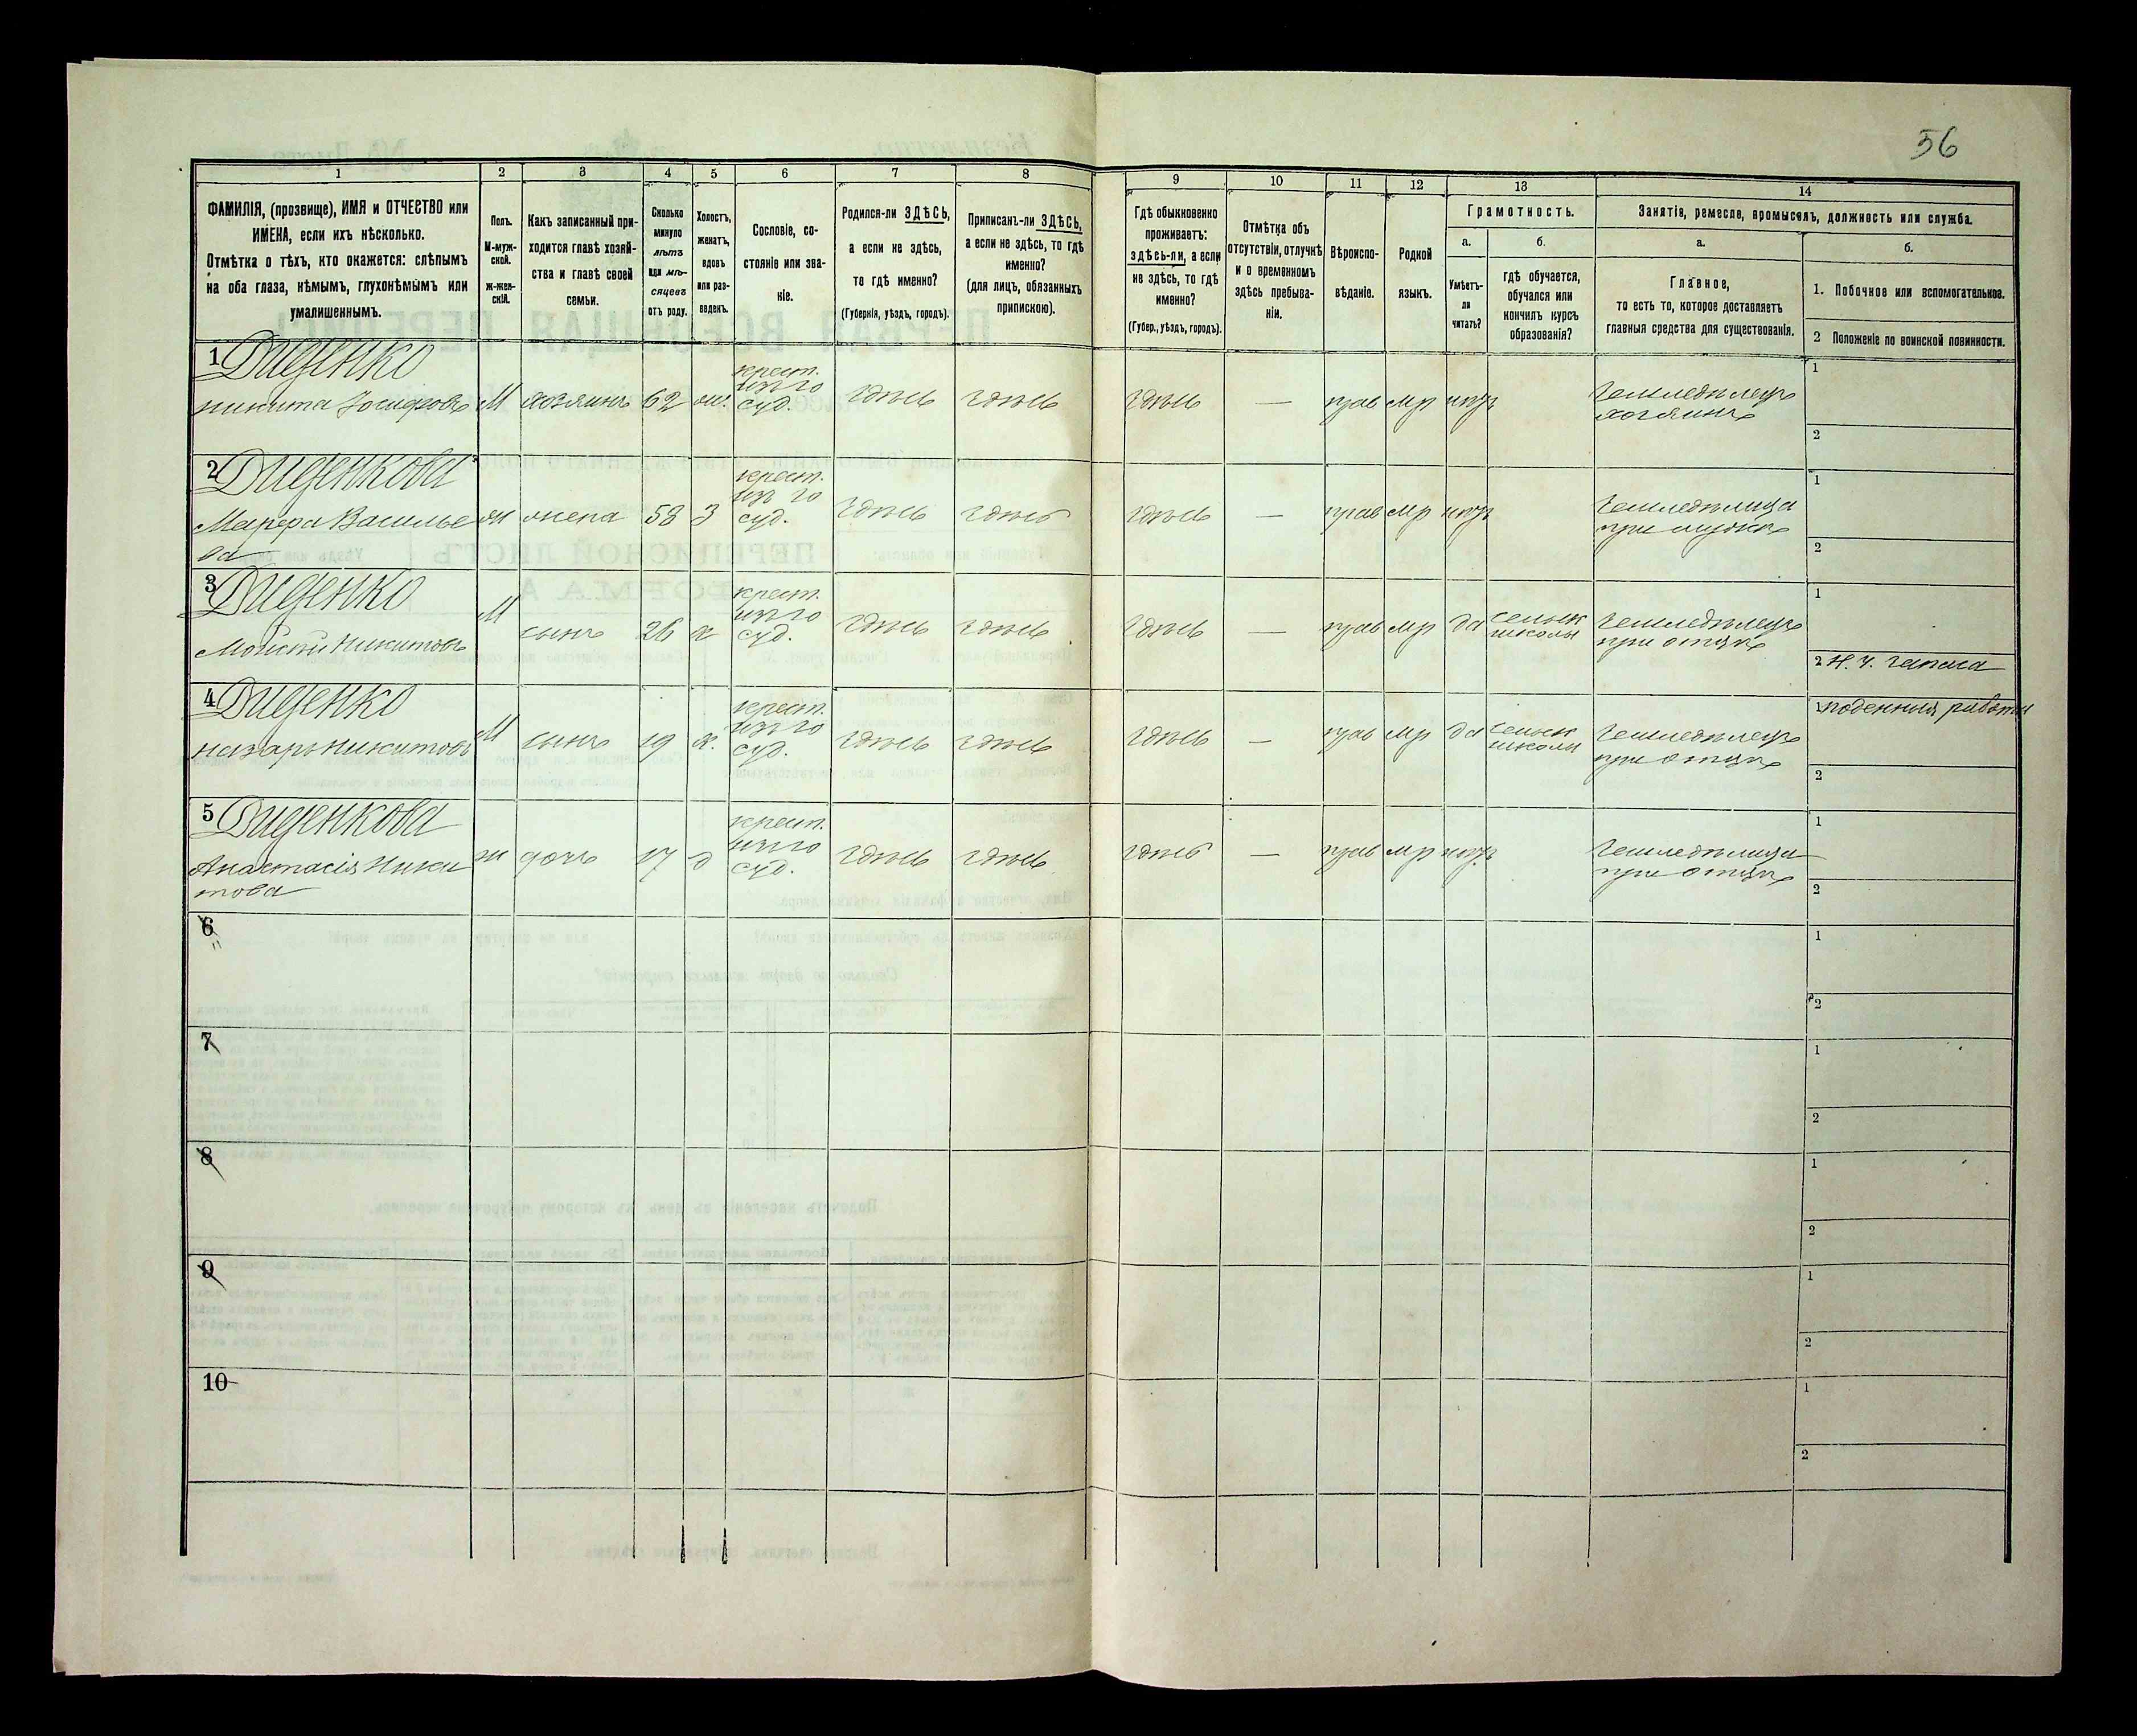 56
1
2
3
4
5
6
7
8
9
10
11
12
13
14
ФАМИЛІЯ, (прозвище), ИМЯ и ОТЧЕСТВО или
ИМЕНА, если ихъ нѣсколько.
Отмѣтка о тѣхъ, кто окажется: слѣпымъ
на оба глаза, нѣмымъ, глухонѣмымъ или
умалишеннымъ.
Полъ.
М-муж-
ской.
Ж-жен-
скій.
Какъ записанный при-
ходится главѣ хозяй-
ства и главѣ своей
семьи.
Сколько
минуло
лѣтъ
или мѣ-
сяцевъ
отъ роду.
Холостъ,
женатъ,
вдовъ
или раз-
веденъ.
Сословіе, со-
стояніе или зва-
ніе.
Родился-ли ЗДѢСЬ,
а если не здѣсь,
то гдѣ именно?
(Губернія, уѣздъ, городъ).
Приписанъ-ли ЗДѢСЬ,
а если не здѣсь, то гдѣ
именно?
(для лицъ, обязанныхъ
припискою).
Гдѣ обыкновенно
проживаетъ:
здѣсь-ли, а если
не здѣсь, то гдѣ
именно?
(Губер., уѣздъ, городъ).
Отмѣтка объ
отсутствіи, отлучкѣ
и о временномъ
здѣсь пребыва-
ніи.
Вѣроиспо-
вѣданіе.
Родной
языкъ.
Грамотность.
а.
Умѣетъ-
ли
читать?
б.
гдѣ обучается,
обучался или
кончилъ курсъ
образованія?
Занятіе, ремесло, промыселъ, должность или служба.
а.
Главное,
то есть то, которое доставляетъ
главныя средства для существованія.
б.
1. Побочное или вспомогательное.
2 Положеніе по воинской повинности.
1 Диденко
Никита Іосифовъ М хозяинъ 62 ж. крест. изъ госуд. здѣсь здѣсь здѣсь — прав мр нѣтъ Земледѣлецъ хозяинъ
1
2
2 Диденкова
Марфа Василье
ва ж жена 58 з крест. изъ госуд. здѣсь здѣсь здѣсь — прав мр нѣтъ Земледѣлица при мужѣ
1
2
3 Диденко
Мойсей Никитовъ М сынъ 26 х крест. изъ госуд. здѣсь здѣсь здѣсь — прав мр да сельск школы Земледѣлецъ при отцѣ
1
2 Н. ч. запаса
4 Диденко
Назарь Никитовъ М сынъ 19 х. крест. изъ госуд. здѣсь здѣсь здѣсь — прав мр да сельск школы Земледѣлецъ при отцѣ
1 поденныя работы
2
5 Диденкова
Анастасія Ники
това ж дочь 17 д крест. изъ госуд. здѣсь здѣсь здѣсь — прав мр нѣтъ Земледѣлица при отцѣ
1
2
6
1
2
7
1
2
8
1
2
9
1
2
10
1
2